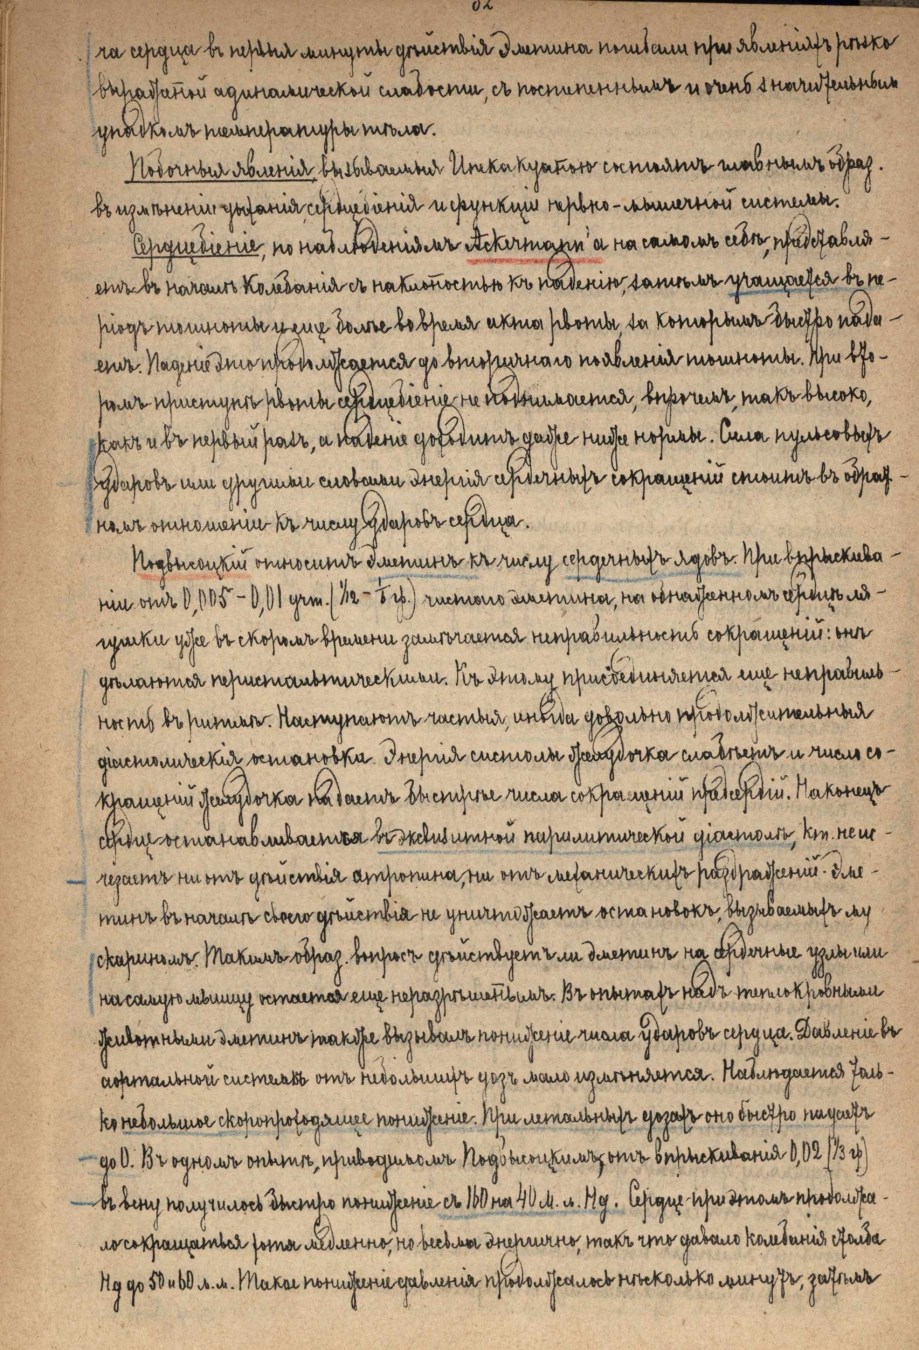 32
ча сердца въ первыя минуты дѣйствія Эметина погибали при явленіяхъ рѣзко
выраженной адинамической слабости, съ постепеннымъ и очень значительнымъ
упадкомъ температуры тѣла.
Побочныя явленія, вызываемыя Ипекакуаною состоятъ главнымъ образ.
въ измѣненіи дыханія, сердцебіенія и функціи нервно-мышечной системы.
Сердцебіеніе, по наблюденіямъ а на самомъ себѣ, представля-
етъ въ началѣ колебанія съ наклонностью къ паденію, затѣмъ учащается въ пе-
ріодъ тошноты и еще болѣе во время акта рвоты, за которымъ быстро пада-
етъ. Паденіе это продолжается до вторичнаго появленія тошноты. При вто-
ромъ приступѣ рвоты сердцебіеніе не поднимается, впрочемъ, такъ высоко,
какъ и въ первый разъ, а паденіе доходитъ даже ниже нормы. Сила пульсовыхъ
ударовъ или другими словами энергія сердечныхъ сокращеній стоитъ въ обрат-
номъ отношеніи къ числу ударовъ сердца.
Подвысоцкій относитъ Эметинъ къ числу сердечныхъ ядовъ. При впрыскива-
ніи отъ 0,005-0,01 (1/12 - 1/6 гр.) чистаго эметина, на обнаженномъ сердцѣ ля-
гушки уже въ скоромъ времени замѣчается неправильность сокращеній: онѣ
дѣлаются перистальтическими. Къ этому присоединяется еще неправиль-
ность въ ритмѣ. Наступаютъ частыя, иногда довольно продолжительныя
діастолическія остановки. Энергія систолы желудочка слабѣетъ и число со-
кращеній желудочка падаетъ быстрѣе числа сокращеній предсердій. Наконецъ
сердце останавливается въ паралитической діастолѣ, кт. не ис-
чезаетъ ни отъ дѣйствія атропина, ни отъ механическихъ раздраженій. Эме-
тинъ въ началѣ своего дѣйствія не уничтожаетъ остановокъ, вызываемыхъ му
скариномъ. Такимъ образ. вопросъ дѣйствуетъ ли эметинъ на сердечные узлы или
на самую мышцу остается еще неразрѣшеннымъ. Въ опытахъ надъ теплокровными
животными эметинъ также вызывалъ пониженіе числа ударовъ сердца. Давленіе въ
аортальной системѣ отъ небольшихъ дозъ мало измѣняется. Наблюдается толь-
ко небольшое скоропроходящее пониженіе. При летальныхъ дозахъ оно быстро падаетъ
до 0. Въ одномъ опытѣ, приводимомъ Подвысоцкимъ, отъ впрыскиванія 0,02 (1/3 гр)
въ вену получилось быстро пониженіе съ 160 на 40 м. м. Hg. Сердце при этомъ продолжа-
ло сокращаться хотя медленно, но весьма энергично, такъ что давало колебанія столба
Hg до 50 и 60 м. м. Такое пониженіе давленія продолжалось нѣсколько минутъ, затѣмъ